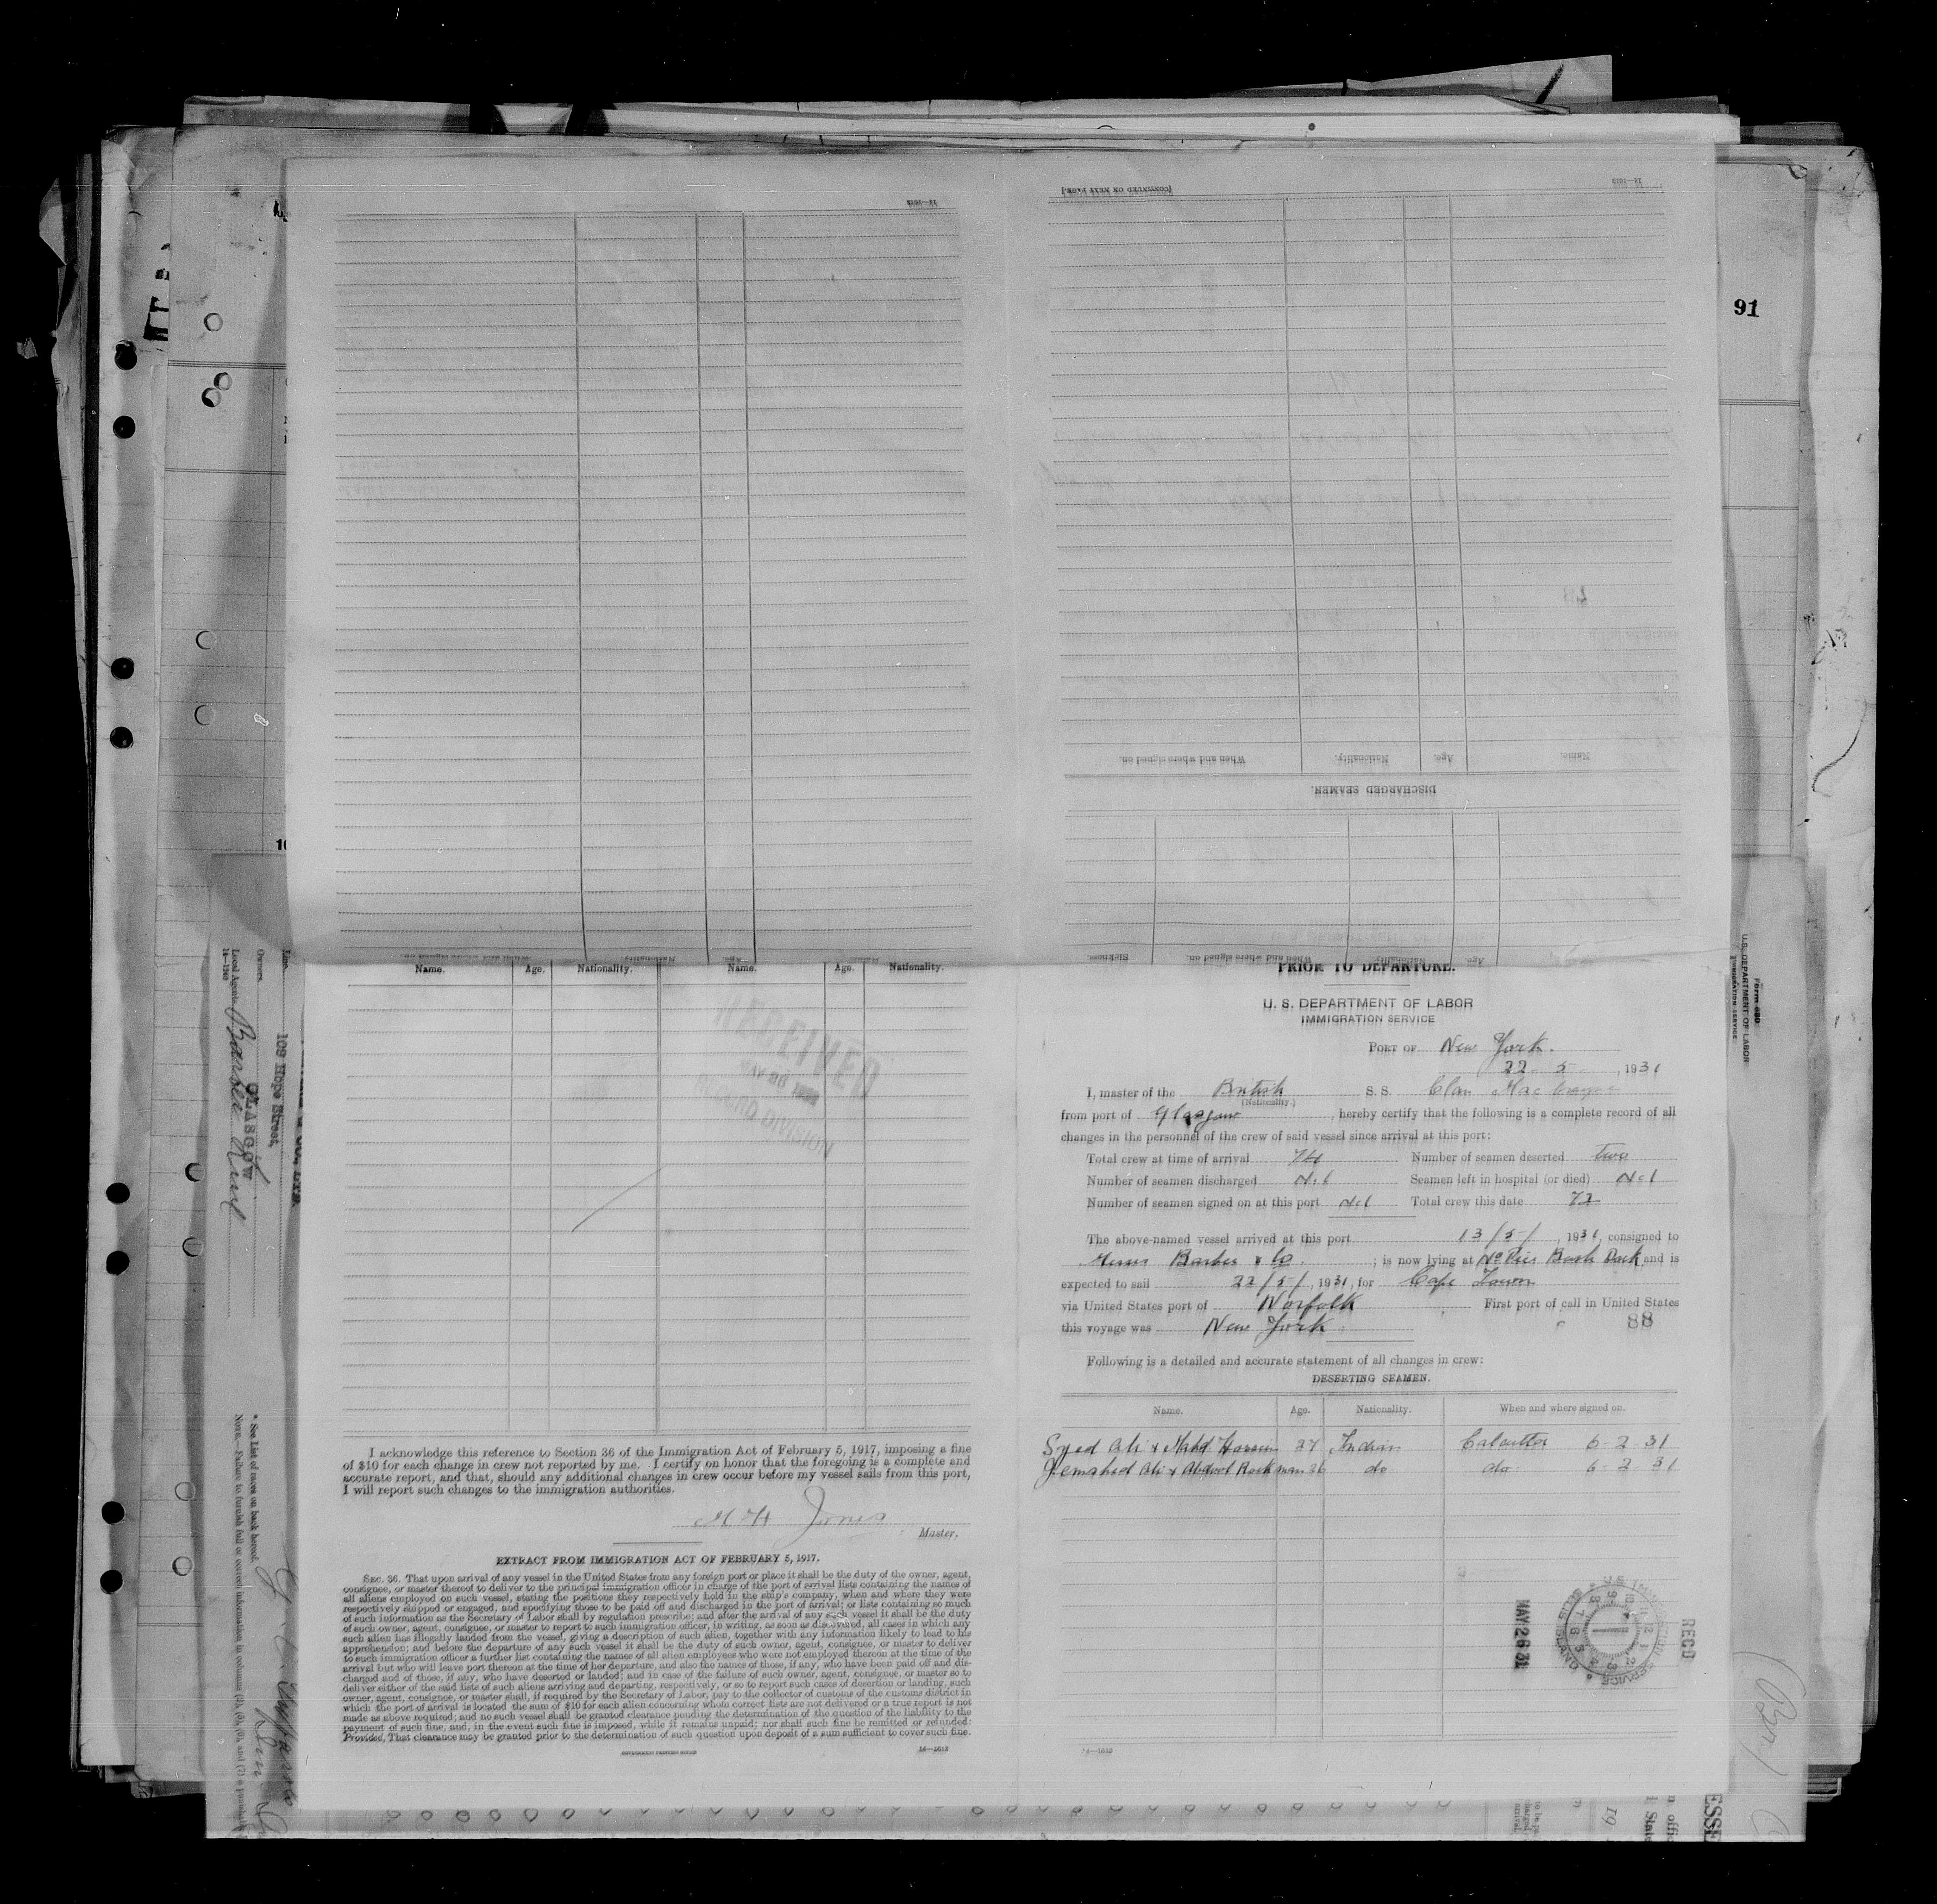 91
[CONTINUED ON NEXT PAGE.]
14—1613
14—1613
Name. Age. Nationality. When and where signed on.
DISCHARGED SEAMEN.
Sickness. When and where signed on. Nationality.
When and where signed on. Nationality. Age. Name.
Name. Age. Nationality. Name. Age. Nationality.
RECEIVED
RECORD DIVISION
I acknowledge this reference to Section 36 of the Immigration Act of February 5, 1917, imposing a fine
of $10 for each change in crew not reported by me. I certify on honor that the foregoing is a complete and
accurate report, and that, should any additional changes in crew occur before my vessel sails from this port,
I will report such changes to the immigration authorities.
Jones
Master.
EXTRACT FROM IMMIGRATION ACT OF FEBRUARY 5, 1917.
SEC. 36. That upon arrival of any vessel in the United States from any foreign port or place it shall be the duty of the owner, agent,
consignee, or master thereof to deliver to the principal immigration officer in charge of the port of arrival lists containing the names of
all aliens employed on such vessel, stating the positions they respectively hold in the ship's company, when and where they were
respectively shipped or engaged, and specifying those to be paid off and discharged in the port of arrival; or lists containing so much
of such information as the Secretary of Labor shall by regulation prescribe; and after the arrival of any such vessel it shall be the duty
of such owner, agent, consignee, or master to report to such immigration officer, in writing, as soon as discovered, all cases in which any
such alien has illegally landed from the vessel, giving a description of such alien, together with any information likely to lead to his
apprehension; and before the departure of any such vessel it shall be the duty of such owner, agent, consignee, or master to deliver
to such immigration officer a further list containing the names of all alien employees who were not employed thereon at the time of the
arrival but who will leave port thereon at the time of her departure, and also the names of those, if any, who have been paid off and dis-
charged and of those, if any, who have deserted or landed; and in case of the failure of such owner, agent, consignee, or master so to
deliver either of the said lists of such aliens arriving and departing, respectively, or so to report such cases of desertion or landing, such
owner, agent, consignee, or master shall, if required by the Secretary of Labor, pay to the collector of customs of the customs district in
which the port of arrival is located the sum of $10 for each alien concerning whom correct lists are not delivered or a true report is not
made as above required; and no such vessel shall be granted clearance pending the determination of the question of the liability to the
payment of such fine, and, in the event such fine is imposed, while it remains unpaid; nor shall such fine be remitted or refunded:
Provided, That clearance may be granted prior to the determination of such question upon deposit of a sum sufficient to cover such fine.
GOVERNMENT PRINTING OFFICE 14—1613
PRIOR TO DEPARTURE.
U. S. DEPARTMENT OF LABOR
IMMIGRATION SERVICE
PORT OF New York.
22 - 5 - , 1931
I, master of the British S. S. Clan
(Nationality.)
from port of Glasgow , hereby certify that the following is a complete record of all
changes in the personnel of the crew of said vessel since arrival at this port:
Total crew at time of arrival 74 Number of seamen deserted two
Number of seamen discharged Nil Seamen left in hospital (or died) Nil
Number of seamen signed on at this port Nil Total crew this date 72
The above-named vessel arrived at this port 13/5/ , 1931, consigned to
Messrs Barber & Co. ; is now lying at No Pier Bush Dock and is
expected to sail 22/5/ , 1931, for Cape Town
via United States port of Norfolk . First port of call in United States
this voyage was New York 88
Following is a detailed and accurate statement of all changes in crew:
DESERTING SEAMEN.
Name. Age. Nationality. When and where signed on.
Syed Ali x Mahd Hassim 27 Indian Calcutta 6 - 2 31
Jemshed Ali x Abdool Rachman 26 do do 6 - 2 - 31
MAY 26 31
U.S. IMMIGRATION SERVICE ELLIS ISLAND
REC'D
Form 680
U.S. DEPARTMENT OF LABOR
IMMIGRATION SERVICE
Line
109 Hope Street,
GLASGOW
Owners
Local Agents Barber Line
14—1240
* See List of races on back hereof.